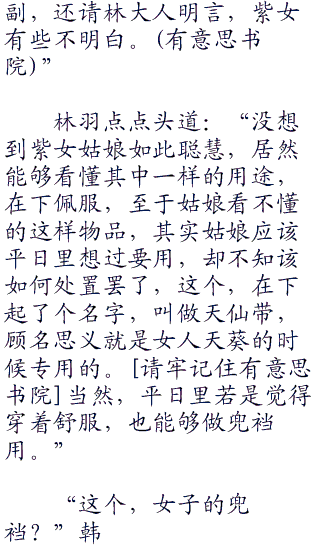 副，还请林大人明言，紫女
有些不明白。(有意思书
院)”
林羽点点头道：“没想
到紫女姑娘如此聪慧，居然
能够看懂其中一样的用途，
在下佩服，至于姑娘看不懂
的这样物品，其实姑娘应该
平日里想过要用，却不知该
如何处置罢了，这个，在下
起了个名字，叫做天仙带，
顾名思义就是女人天葵的时
候专用的。[请牢记住有意思
书院]当然，平日里若是觉得
穿着舒服，也能够做兜裆
用。”
“这个，女子的兜
裆？”韩